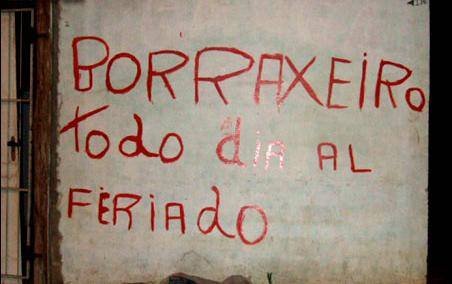 BORRAXEIRO
todo dia AL
FERIAdO